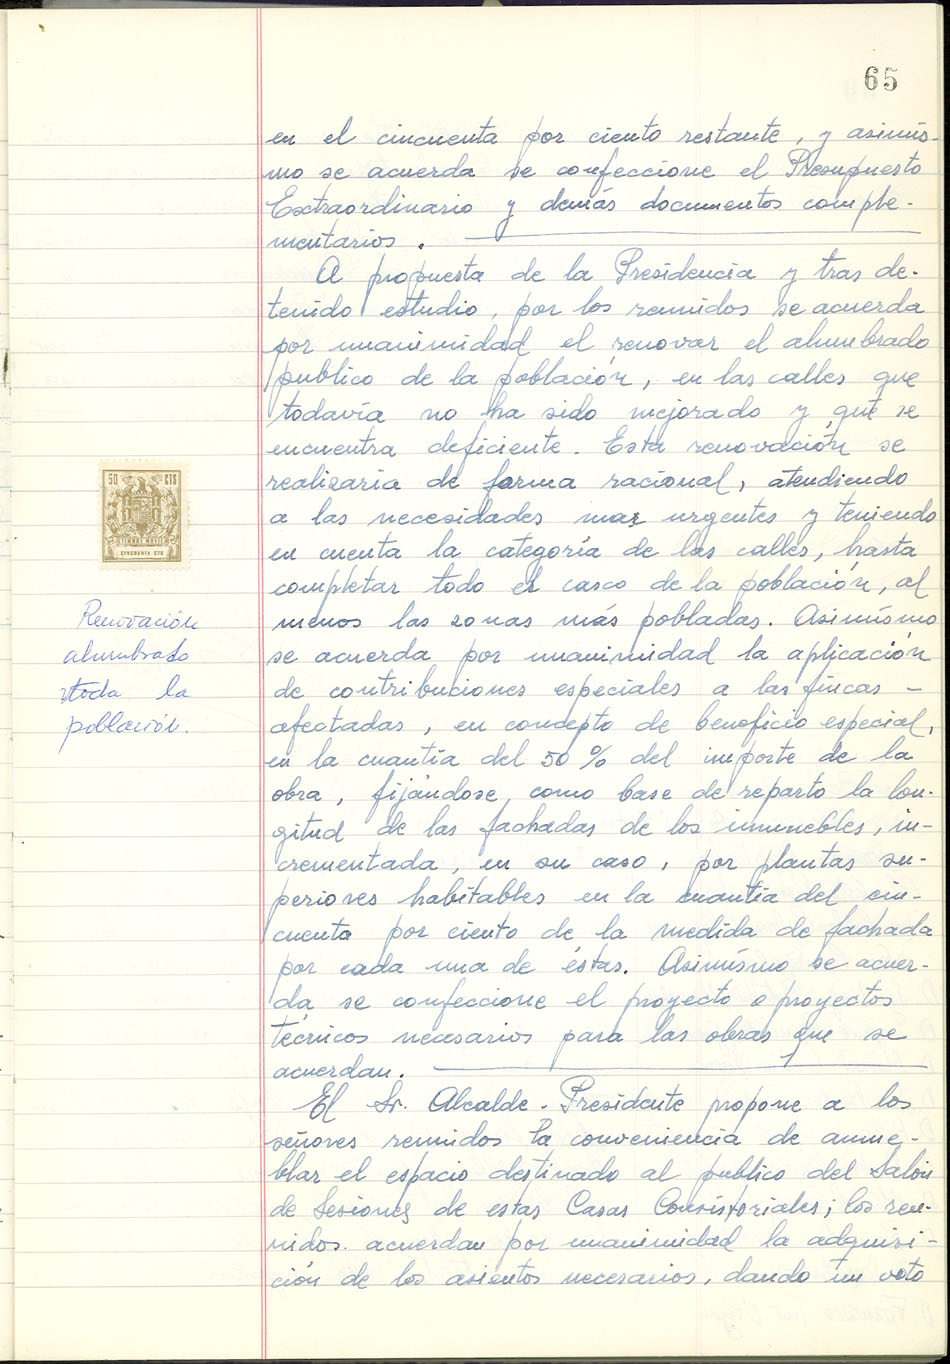 65
en el cincuenta por ciento restante, y asimis-
mo se acuerda se confeccione el Presupuesto
Extraordinario y demás documentos comple-
mentarios.
A propuesta de la Presidencia y tras de-
tenido estudio, por los reunidos se acuerda
por unanimidad el renovar el alumbrado
publico de la población, en las calles que
todavía no ha sido mejorado y que se
encuentra deficiente. Esta renovación se
realizaria de forma racional, atendiendo
a las necesidades mas urgentes y teniendo
en cuenta la categoría de las calles, hasta
completar todo el casco de la población, al
menos las zonas más pobladas. Asimísmo
se acuerda por unanimidad la aplicación
de contribuciones especiales a las fincas -
afectadas, en concepto de beneficio especial,
en la cuantía del 50 % del importe de la
obra, fijándose, como base de reparto la lon-
gitud de las fachadas de los inmuebles, in-
crementada, en su caso, por plantas su-
periores habitables en la cuantía del cin-
cuenta por ciento de la medida de fachada
por cada una de éstas. Asimísmo se acuer-
da se confeccione el proyecto o proyectos
técnicos necesarios para las obras que se
acuerdan.
El Sr. Alcalde-Presidente propone a los
señores reunidos la conveniencia de amue-
blar el espacio destinado al publico del Salón
de Sesiones de estas Casas Consistoriales; los reu-
nidos acuerdan por unanimidad la adquisi-
ción de los asientos necesarios, dando un voto
50 CTS
TIMBRE MOVIL
CINCUENTA CTS
Renovación
alumbrado
toda la
población.